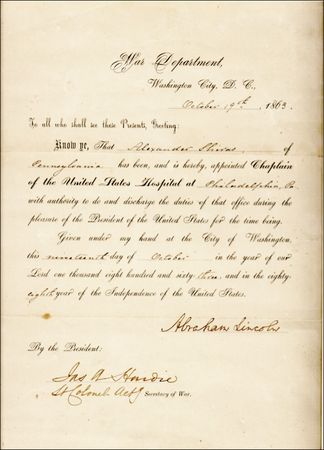 War Department,
Washington City, D. C.,
October 19th, 1863.
To all who shall see these Presents, Greeting:
Know ye, That Alexander Shiras of
Pennsylvania has been, and is hereby, appointed Chaplain
of the United States Hospital at Philadelphia, Pa
with authority to do and discharge the duties of that office during the
pleasure of the President of the United States for the time being.
Given under my hand at the City of Washington,
this nineteenth day of October in the year of our
Lord one thousand eight hundred and sixty three and in the eighty-
eighth year of the Independence of the United States.
Abraham Lincoln
By the President:
Jas A Hardie
Lt Colonel Actg Secretary of War.